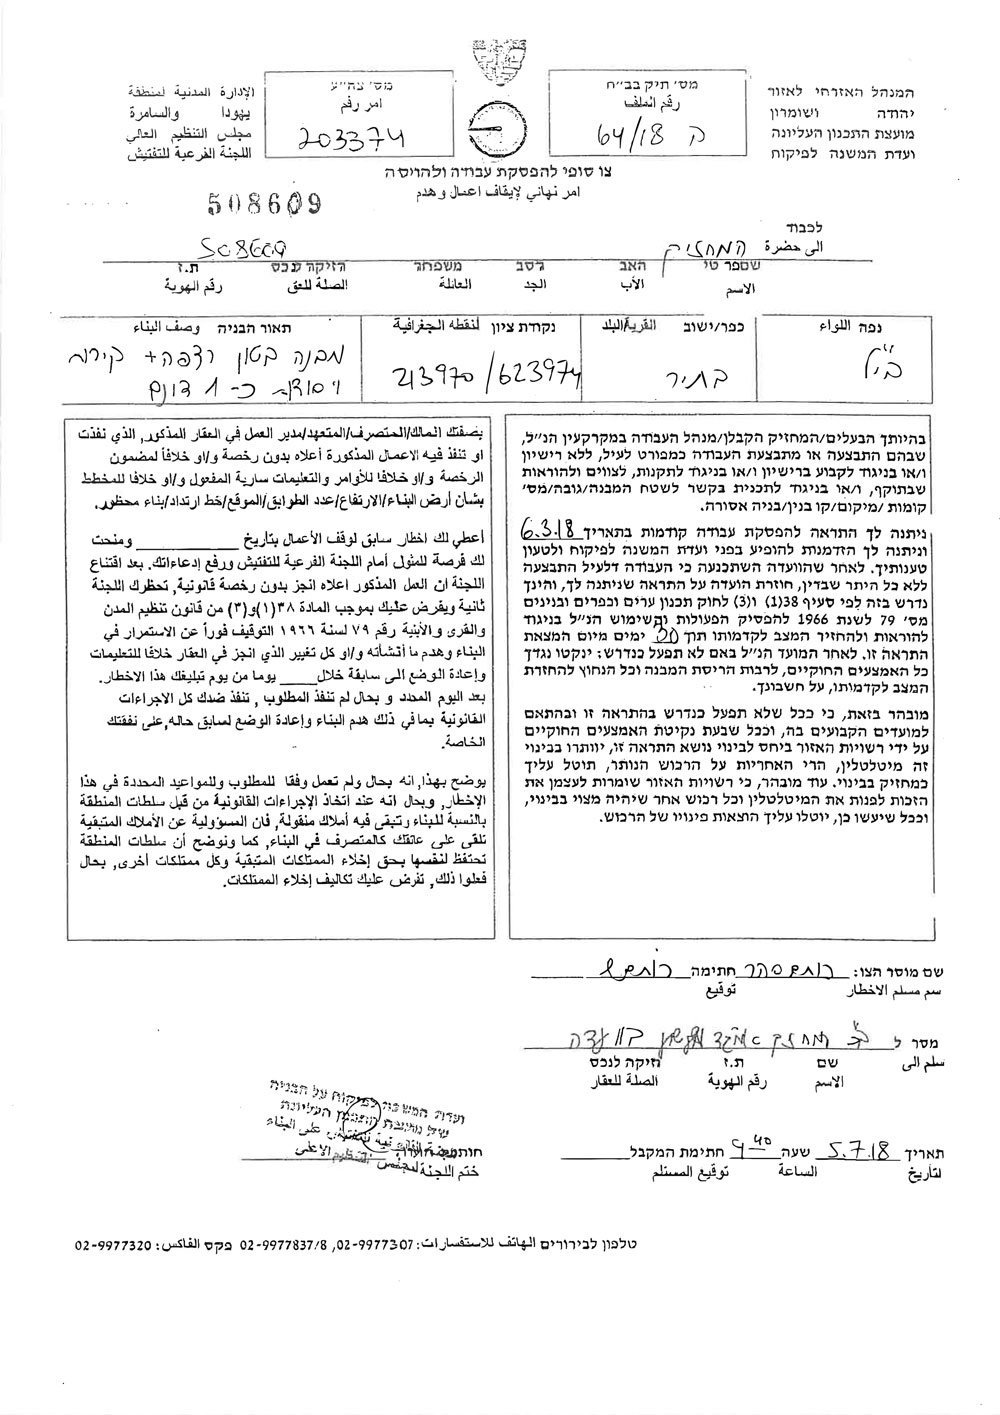 המנהל האזרחי לאזור
יהודה ושומרון
מועצת התכנון העליונה
ועדת המשנה לפיקוח
מס׳ תיק בב״ח
رقم الملف
ה 64/18
מס׳ צה״ע
امر رقم
203374
الإدارة المدنية لمنطقة
يهودا والسامرة
مجلس التنظيم العالي
اللجنة الفرعية للتفتيش
צו סופי להפסקת עבודה ולהריסה
امر نهائي لإيقاف اعمال وهدم
508609
לכבוד
الى حضرة המחזיק 508609
שם פרטי האב הסב משפחה הזיקה לנכס ת.ז
الاسم الأب الجد العائلة الصلة للعقار رقم الهوية
נפה اللواء
בי״ל
כפר/ישוב القرية/البلد
בתיר
נקודת ציון لنقطه الجغرافية
213970/623974
תאור הבניה وصف البناء
מבנה בטון רצפה + קירות
ויסודות כ- 1 דונם
בהיותך הבעלים/המחזיק הקבלן/מנהל העבודה במקרקעין הנ״ל,
שבהם התבצעה או מתבצעת העבודה כמפורט לעיל, ללא רישיון
ו/או בניגוד לקבוע ברישיון ו/או בניגוד לתקנות, לצווים ולהוראות
שבתוקף, ו/או בניגוד לתכנית בקשר לשטח המבנה/גובה/מס׳
קומות /מיקום/קו בנין/בניה אסורה.
ניתנה לך התראה להפסקת עבודה קודמות בתאריך 6.3.18
וניתנה לך הזדמנות להופיע בפני ועדת המשנה לפיקוח ולטעון
טענותיך. לאחר שהוועדה השתכנעה כי העבודה דלעיל התבצעה
ללא כל היתר שבדין, חוזרת הועדה על התראה שניתנה לך, והינך
נדרש בזה לפי סעיף 38(1) ו(3) לחוק תכנון ערים וכפרים ובנינים
מס׳ 79 לשנת 1966 להפסיק הפעולות והשימוש הנ״ל בניגוד
להוראות ולהחזיר המצב לקדמותו תוך 30 ימים מיום המצאת
התראה זו. לאחר המועד הנ״ל באם לא תפעל כנדרש: ינקטו נגדך
כל האמצעים החוקיים, לרבות הריסת המבנה וכל הנחוץ להחזרת
המצב לקדמותו, על חשבונך.
מובהר בזאת, כי ככל שלא תפעל כנדרש בהתראה זו ובהתאם
למועדים הקבועים בה, וככל שבעת נקיטת האמצעים החוקיים
על ידי רשויות האזור ביחס לבינוי נושא התראה זו, יוותרו בבינוי
זה מיטלטלין, הרי האחריות על הרכוש הנותר, תוטל עליך
כמחזיק בבינוי. עוד מובהר, כי רשויות האזור שומרות לעצמן את
הזכות לפנות את המיטלטלין וכל רכוש אחר שיהיה מצוי בבינוי,
וככל שיעשו כן, יוטלו עליך הוצאות פינויו של הרכוש.
بصفتك المالك/المتصرف/المتعهد/مدير العمل في العقار المذكور, الذي نفذت
او تنفذ فيه الاعمال المذكورة أعلاه بدون رخصة و/او خلافاً لمضمون
الرخصة و/او خلافا للأوامر والتعليمات سارية المفعول و/او خلافا للمخطط
بشأن أرض البناء/الارتفاع/عدد الطوابق/الموقع/خط ارتداد/بناء محظور.
أعطي لك اخطار سابق لوقف الأعمال بتاريخ ____________ ومنحت
لك فرصة للمثول أمام اللجنة الفرعية للتفتيش ورفع إدعاءاتك. بعد اقتناع
اللجنة ان العمل المذكور اعلاه انجز بدون رخصة قانونية, تحظرك اللجنة
ثانية ويفرض عليك بموجب المادة ٣٨(١)و(٣) من قانون تنظيم المدن
والقرى والأبنية رقم ٧٩ لسنة ١٩٦٦ التوقيف فوراً عن الاستمرار في
البناء وهدم ما أنشأته و/او كل تغيير الذي انجز في العقار خلافا للتعليمات
وإعادة الوضع الى سابقة خلال_____ يوما من يوم تبليغك هذا الاخطار.
بعد اليوم المحدد و بحال لم تنفذ المطلوب , تنفذ ضدك كل الاجراءات
القانونية بما في ذلك هدم البناء وإعادة الوضع لسابق حاله,على نفقتك
الخاصة.
يوضح بهذا, انه بحال ولم تعمل وفقا للمطلوب وللمواعيد المحددة في هذا
الإخطار, وبحال انه عند اتخاذ الإجراءات القانونية من قبل سلطات المنطقة
بالنسبة للبناء رتبقى فيه أملاك منقولة, فان المسؤولية عن الأملاك المتبقية
تلقى على عاتقك كالمتصرف في البناء, كما ونوضح أن سلطات المنطقة
تحتفظ لنفسها بحق إخلاء الممتلكات المتبقية وكل ممتلكات أخرى, بحال
فعلوا ذلك, تفرض عليك تكاليف إخلاء الممتلكات.
שם מוסר הצו: רותם סהר חתימה
سم مسلم الاخطار توقيع
מסר ל
سلم الى
שם ת.ז זיקה לנכס
الاسم رقم الهوية الصلة للعقار
ועדת המשנה לפיקוח על הבניה
של מועצת התכנון העליונה
תאריך 5.7.18 שעה 9 40 חתימת המקבל
لتاريخ الساعة توقيع المستلم
ختم اللجنة
טלפון לבירורים الهاتف للاستفسارات: 02-9977307, 02-9977837/8 פקס الفاكس: 02-9977320